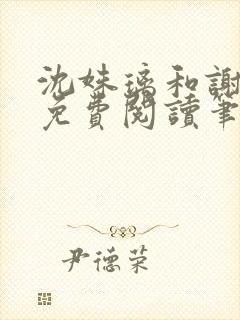 沈妹璃和謝
免費閱讀筆
尹德荣